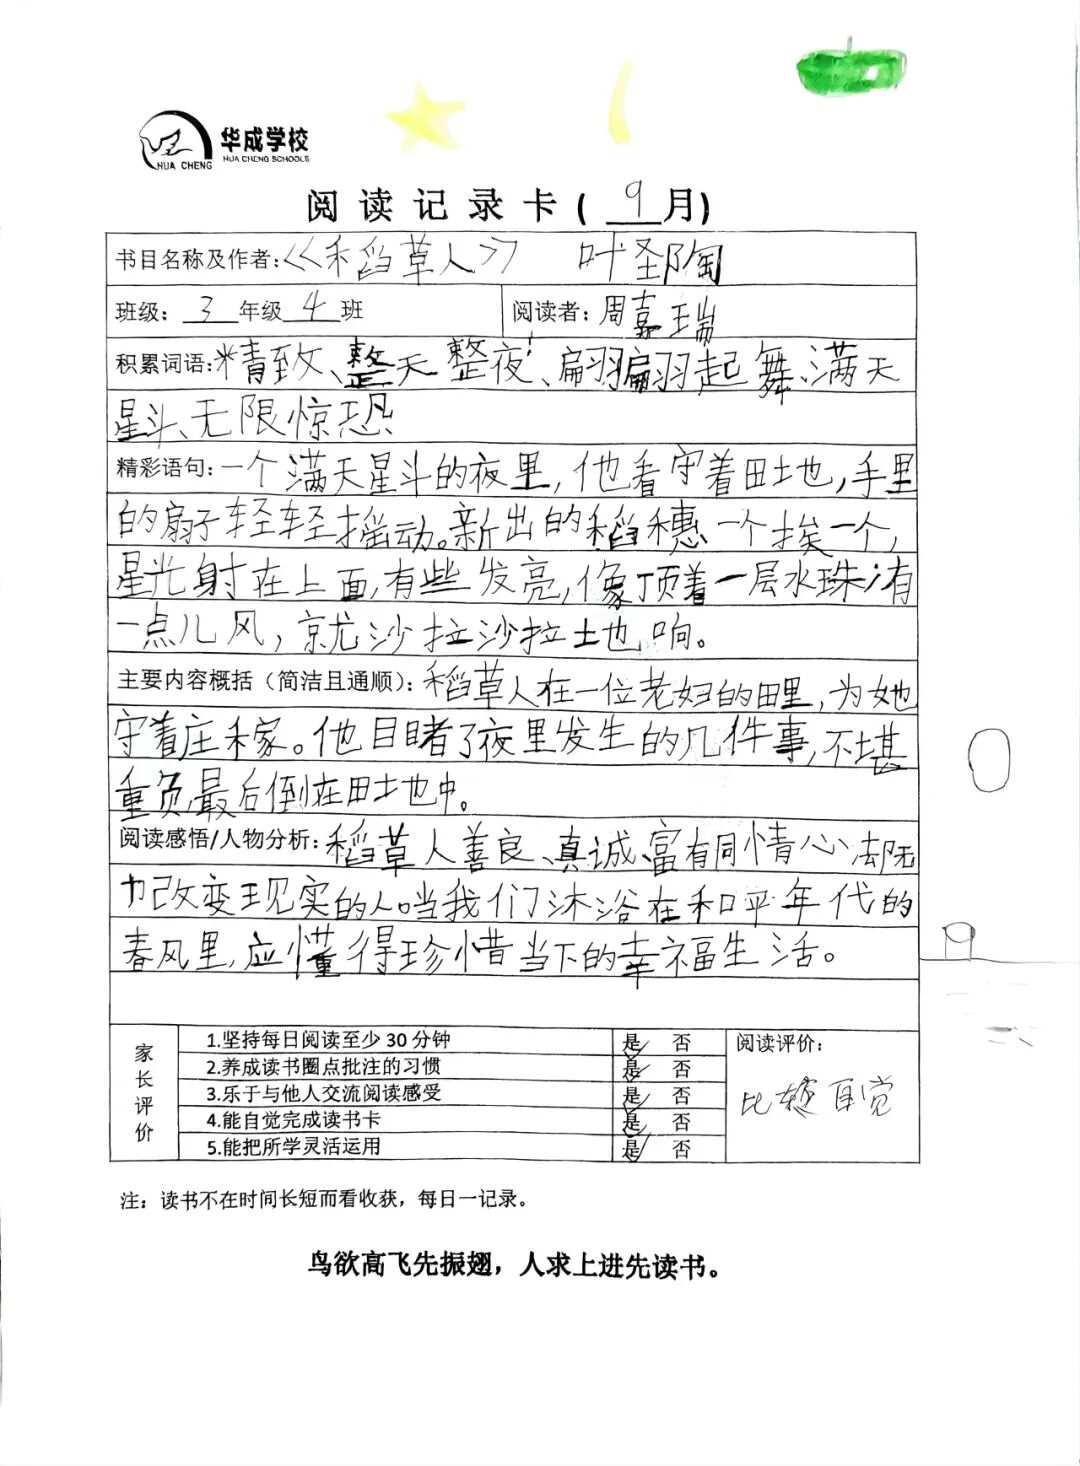 华成学校
HUA CHENG SCHOOLS
HUA CHENG
阅读记录卡(9月)
书目名称及作者:《稻草人》 叶圣陶
班级: 3 年级 4 班 阅读者: 周嘉瑞
积累词语: 精致、整天整夜、翩翩起舞、满天
星斗、无限惊恐
精彩语句: 一个满天星斗的夜里,他看守着田土地,手里
的扇子轻轻摇动。新出的稻穗一个挨一个,
星光射在上面,有些发亮,像顶着一层水珠;有
一点儿风,就沙拉沙拉土地响。
主要内容概括(简洁且通顺): 稻草人在一位老妇的田里,为她
守着庄稼。他目睹了夜里发生的几件事,不堪
重负,最后倒在田土地中。
阅读感悟/人物分析: 稻草人善良、真诚、富有同情心却无
力改变现实的人。当我们沐浴在和平年代的
春风里,应懂得珍惜当下的幸福生活。
家长评价
1.坚持每日阅读至少30分钟 是✓ 否
2.养成读书圈点批注的习惯 是✓ 否
3.乐于与他人交流阅读感受 是✓ 否
4.能自觉完成读书卡 是✓ 否
5.能把所学灵活运用 是✓ 否
阅读评价:
比较自觉
注:读书不在时间长短而看收获,每日一记录。
鸟欲高飞先振翅,人求上进先读书。